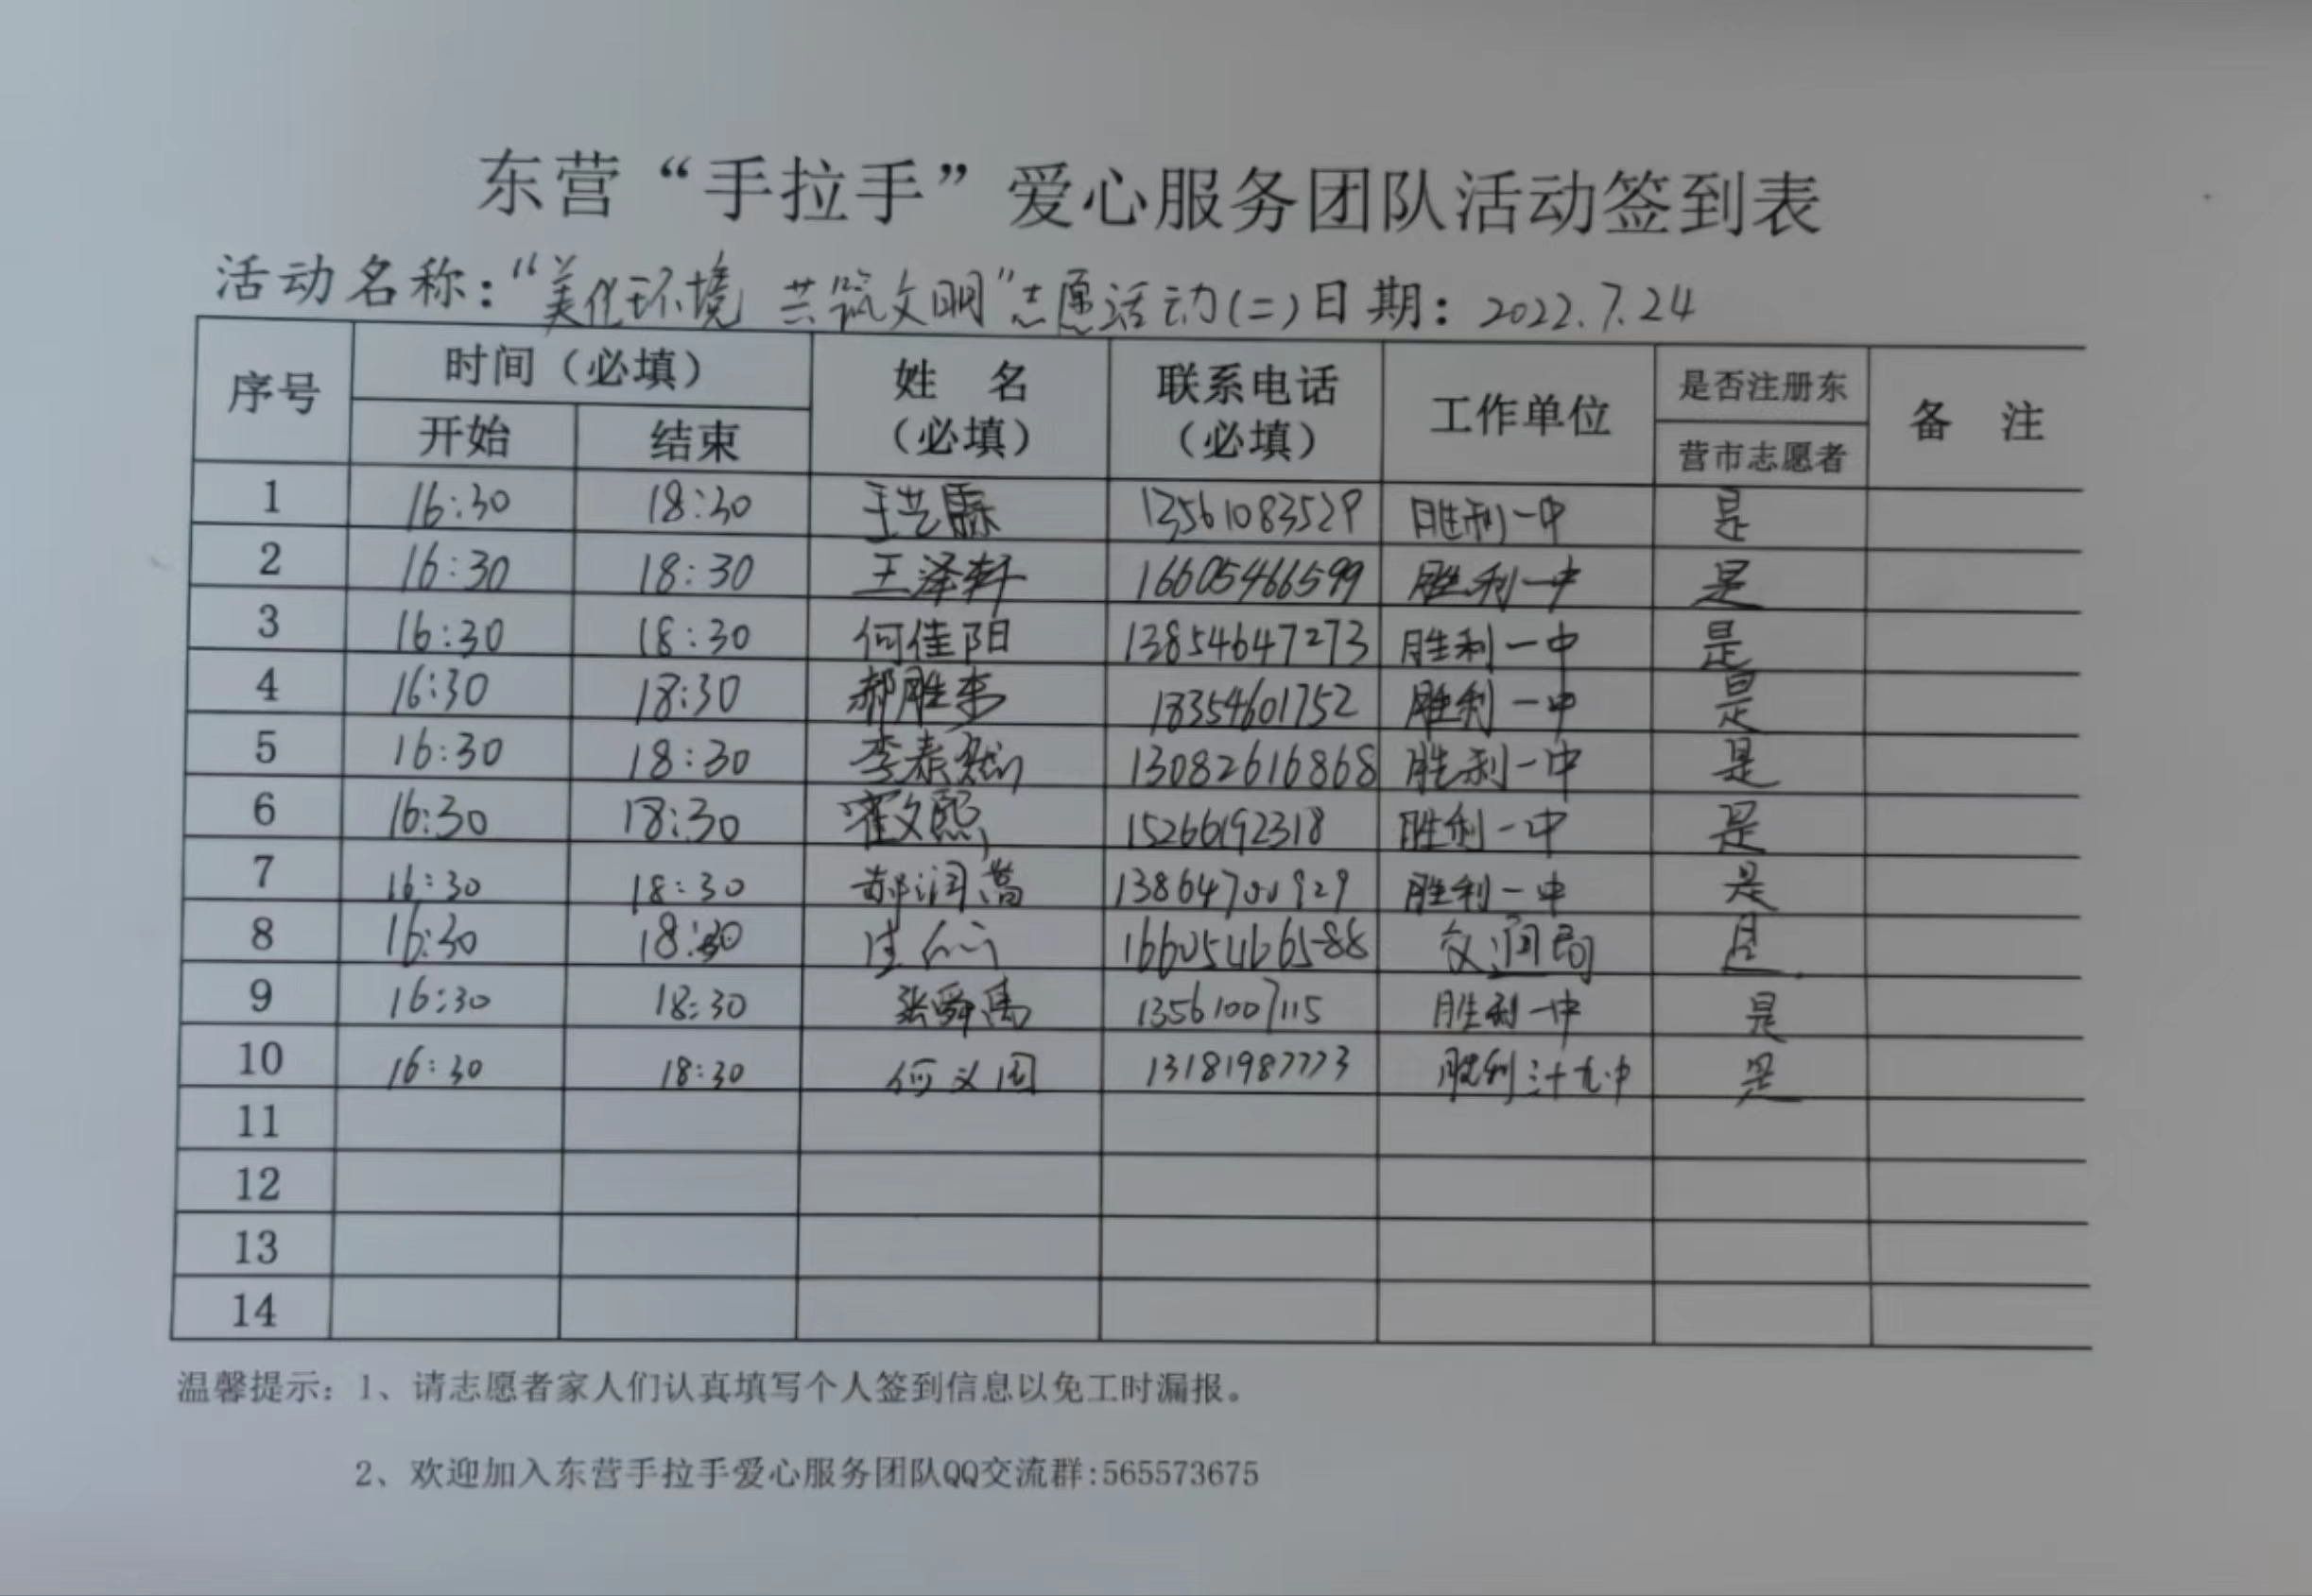 东营“手拉手”爱心服务团队活动签到表
活动名称：“美化环境 共筑文明”志愿活动(二) 日期：2022.7.24
序号 时间（必填） 姓 名（必填） 联系电话（必填） 工作单位 是否注册东营市志愿者 备 注
开始 结束
1 16:30 18:30 王艺霖 13561083529 胜利一中 是
2 16:30 18:30 王泽轩 16605466599 胜利一中 是
3 16:30 18:30 何佳阳 13854647273 胜利一中 是
4 16:30 18:30 郝胜 18354601752 胜利一中 是
5 16:30 18:30 李泰然 13082616868 胜利一中 是
6 16:30 18:30 霍文熙 15266192318 胜利一中 是
7 16:30 18:30 郝润嵩 13864700929 胜利一中 是
8 16:30 18:30 16605466588 是
9 16:30 18:30 张舜禹 13561007115 胜利一中 是
10 16:30 18:30 何义周 13181987773 胜利三十九中 是
11
12
13
14
温馨提示：1、请志愿者家人们认真填写个人签到信息以免工时漏报。
2、欢迎加入东营手拉手爱心服务团队QQ交流群:565573675